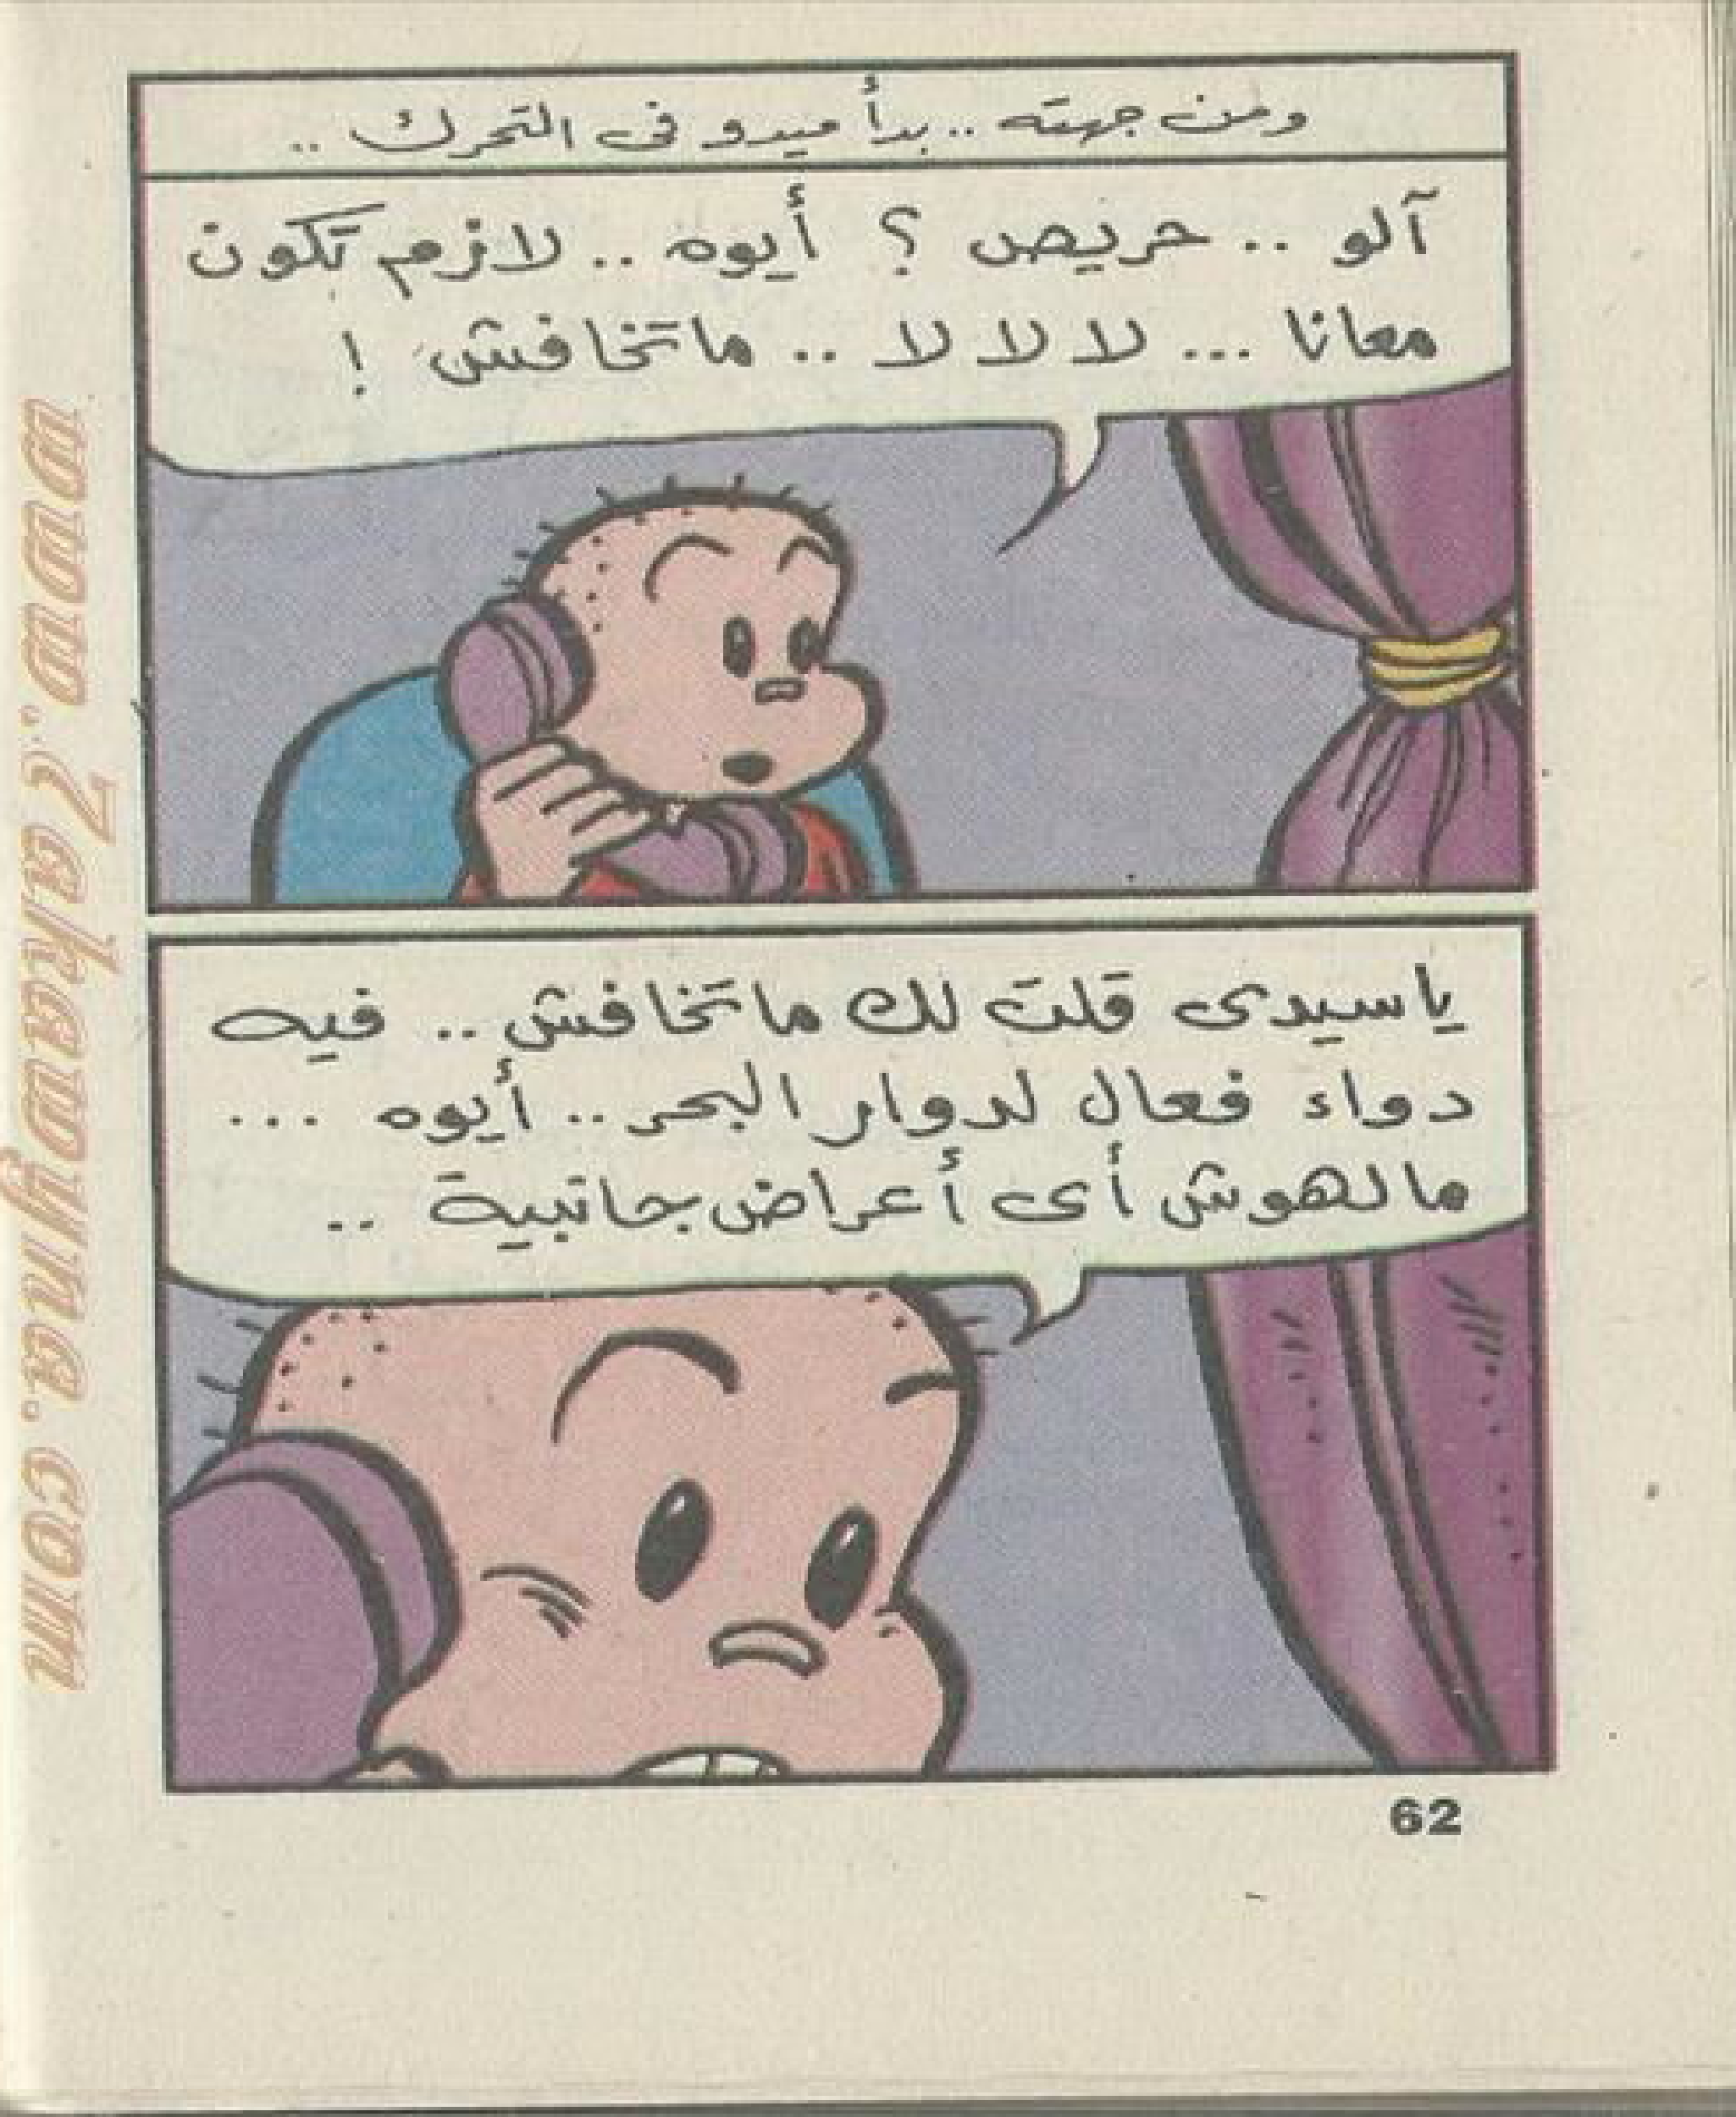 ومن جهته .. بدأ ميدو فى التحرك ..
آلو .. حريص ؟ أيوه .. لازم تكون
معانا ... لا لا لا .. ماتخافش !
ياسيدى قلت لك ماتخافش .. فيه
دواء فعال لدوار البحر .. أيوه ...
مالهوش أى أعراض جانبية ..
62
www.Zahawyuna.com